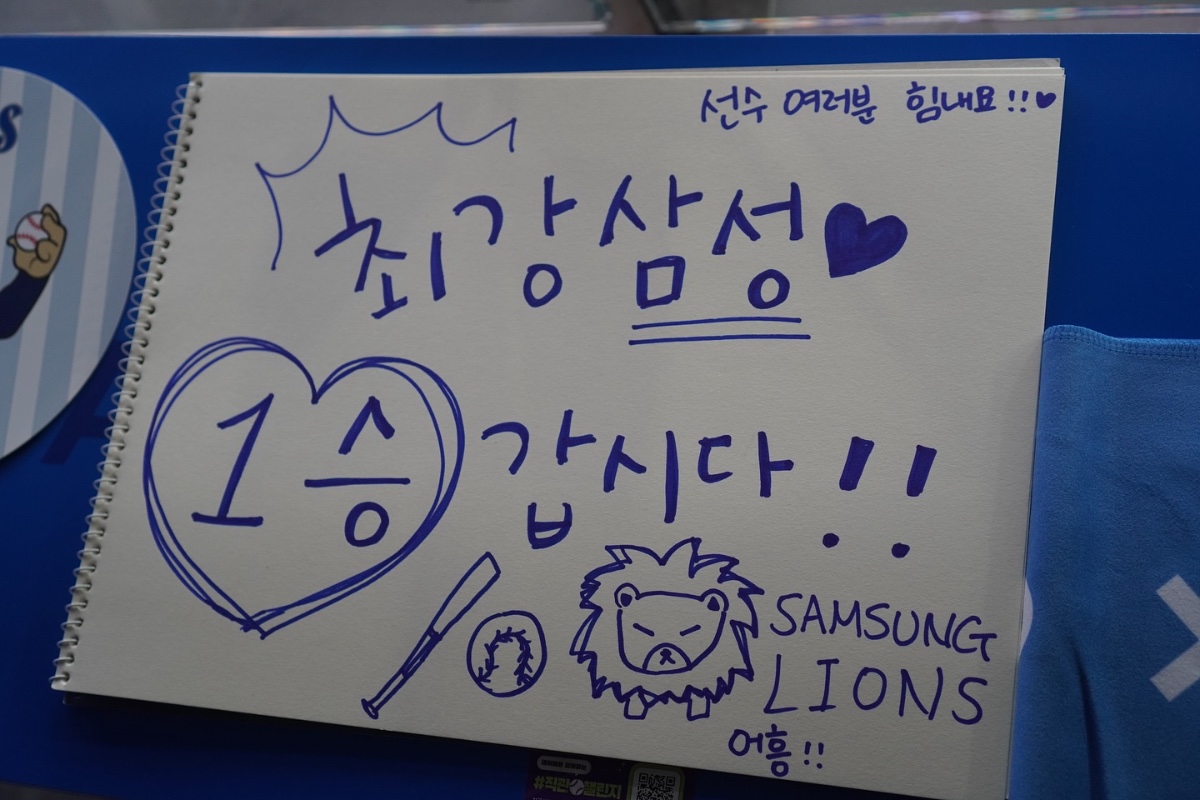 선수 여러분 힘내요!!♥
최강삼성♥
1승 갑시다!!
SAMSUNG
LIONS
어흥!!
#직관챌린지